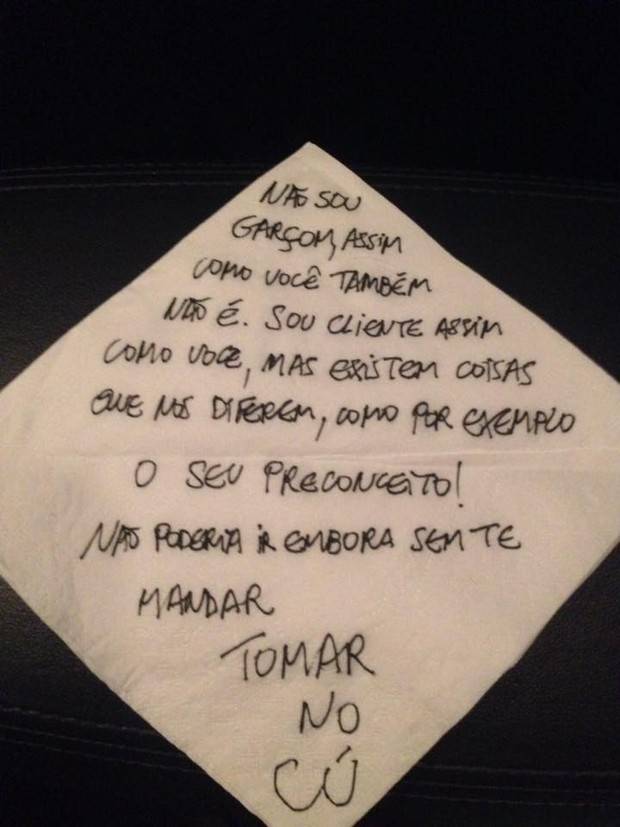 NÃO SOU
GARÇOM, ASSIM
COMO VOCÊ TAMBÉM
NÃO É. SOU CLIENTE ASSIM
COMO VOCE, MAS EXISTEM COISAS
QUE NOS DIFEREM, COMO POR EXEMPLO
O SEU PRECONCEITO!
NÃO PODERIA IR EMBORA SEM TE
MANDAR
TOMAR
NO
CÚ